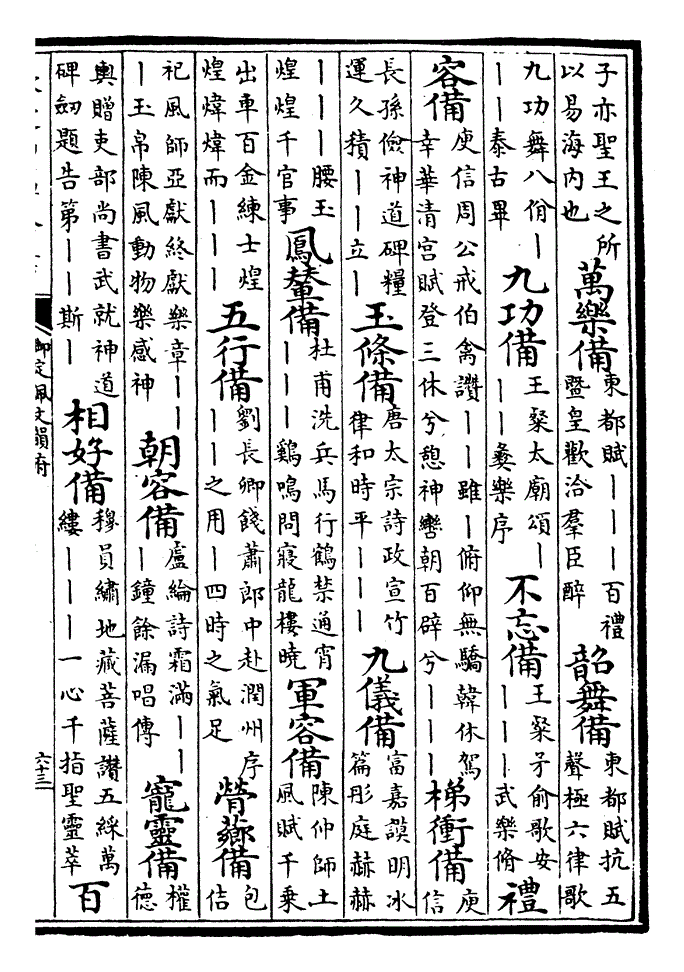 子亦聖王之所以易海内也萬樂備東都賦｜｜｜百禮暨皇歡洽羣臣醉韶舞備東都賦抗五聲極六律歌
九功舞八佾｜｜｜泰古畢九功備王粲太廟頌｜｜｜彞樂序不忘備王粲矛俞歌安｜｜｜武樂脩禮
容備庾信周公戒伯禽讚｜｜雖｜俯仰無驕韓休駕幸華清宮賦登三休兮憩神轡朝百辟兮｜｜｜梯衝備庾信
長孫儉神道碑糧運久積｜｜立｜玉條備唐太宗詩政宣竹律和時平｜｜｜九儀備富嘉謨明冰篇彤庭赫赫
｜｜｜腰玉煌煌千官事鳳輦備杜甫洗兵馬行鶴禁通宵｜｜｜雞鳴問寢龍樓曉軍容備陳仲師土風賦千乗
出車百金練士煌煌煒煒而｜｜｜五行備劉長卿餞蕭郎中赴潤州序｜｜之用｜四時之氣足膋薌備包佶
祀風師亞獻終獻樂章｜｜｜玉帛陳風動物樂感神朝容備盧綸詩霜滿｜｜｜鐘餘漏唱傳寵靈備權德
輿贈吏部尚書武就神道碑劒題告第｜｜斯｜相好備穆員繡地藏菩薩讚五綵萬縷｜｜｜一心千指聖靈萃百
御定佩文韻府
六十三